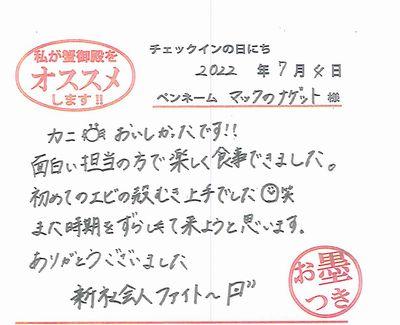 私が蟹御殿を
オススメ
します!!
チェックインの日にち
2022 年 7 月 4 日
ペンネーム マックのナゲット 様
カニ おいしかったです!!
面白い担当の方で楽しく食事できました。
初めてのエビの殻むき上手でした 笑
また時期をずらして来ようと思います。
ありがとうございました
新社会人ファイト〜
お墨
つき